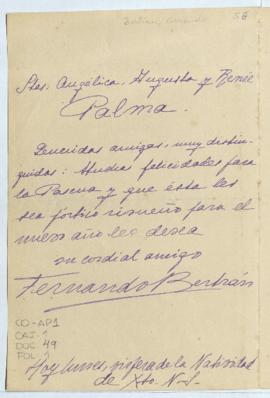 58
Stas. Angélica, Augusta y Renée
Palma.
amigas, muy distin-
guidas: Muchas felicidades para
la Pascua y que ésta les
sea pórtico risueño para el
nuevo año les desea
su cordial amigo
Fernando Bertrán
CO-AP1
CAJ. 1
DOC. 49
FOL. 1
Hoy lunes, víspera de la Natividad
de Xto. N. S.